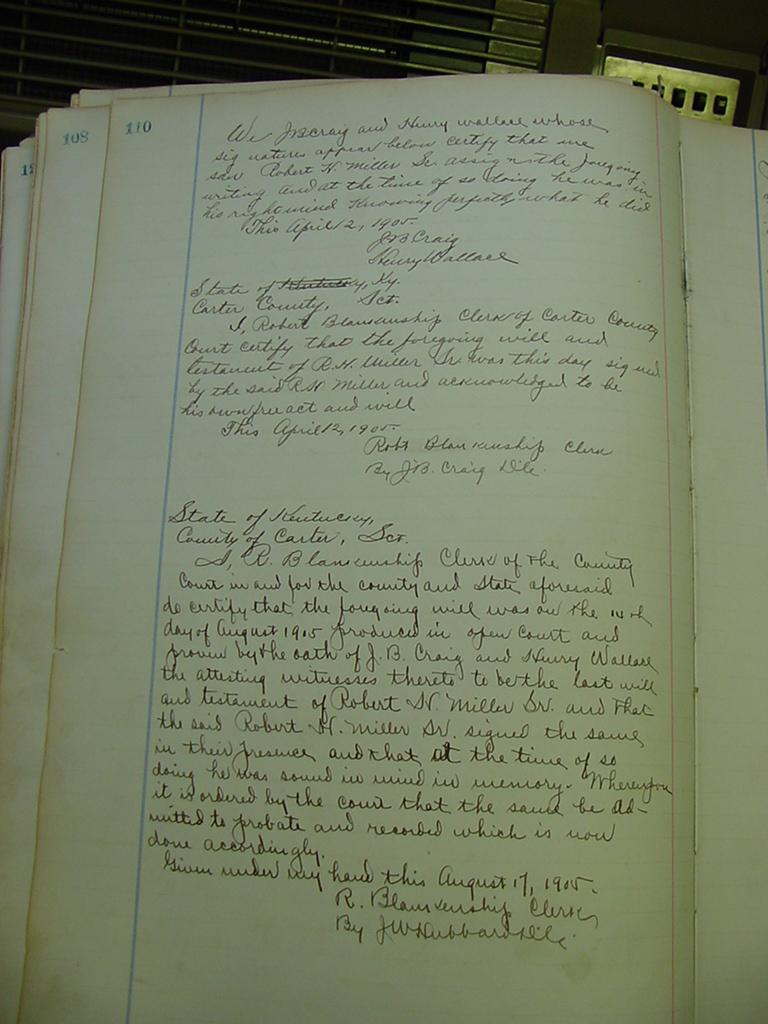 108
110
We J B Craig and Henry Wallace whose
signatures appear below certify that we
saw Robert H. Miller Sr. assign the foregoing
writing and at the time of so doing he was in
his right mind Knowing perfectly what he did
This April 12, 1905.
J.B Craig
Henry Wallace
State of Kentucky, Ky.
Carter County, Sct.
I, Robert Blankenship Clerk of Carter County
Court certify that the foregoing will and
testament of R.H. Miller Sr. was this day signed
by the said R H Miller and acknowledged to be
his own free act and will
This April 12, 1905.
Robt Blankenship Clerk
By J.B. Craig D.C.
State of Kentucky,
County of Carter, Sct.
I, R. Blankenship Clerk of the County
Court in and for the county and State aforesaid
do certify that the foregoing will was on the th
day of August 1905 produced in open Court and
proven by the oath of J. B. Craig and Henry Wallace
the attesting witnesses thereto to be the last will
and testament of Robert H. Miller Sr. and that
the said Robert H. Miller Sr. signed the same
in their presence and that at the time of so
doing he was sound in mind in memory. Whereupon
it is ordered by the court that the same be ad-
mitted to probate and recorded which is now
done accordingly.
Given under my hand this August 17, 1905.
R. Blankenship Clerk
By J W Hubbard D.C.